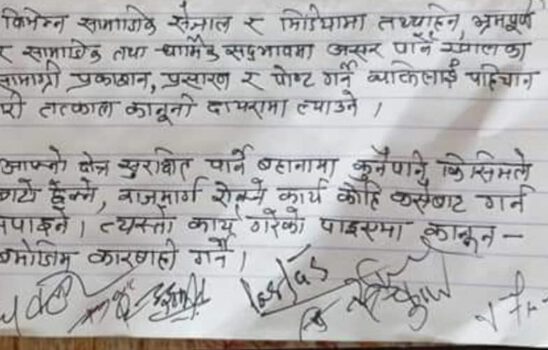 विभिन्न सामाजिक संजाल र मिडियामा तथ्यहिन, भ्रमपूर्ण
र सामाजिक तथा धार्मिक सद्भावमा असर पार्ने खालका
सामाग्री प्रकाशन, प्रसारण र पोष्ट गर्ने व्यक्तिलाई पहिचान
गरी तत्काल कानूनी दायरामा ल्याउने ।
आफ्नो क्षेत्र सुरक्षित पार्ने बहानामा कुनैपनि किसिमले
बाटो छेक्ने, राजमार्ग रोक्ने कार्य कोहि कसैबाट गर्न
नपाइने । त्यस्तो कार्य गरेको पाइएमा कानून –
बमोजिम कारवाही गर्ने ।